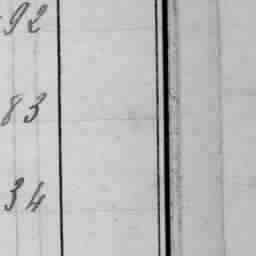 92
83
34